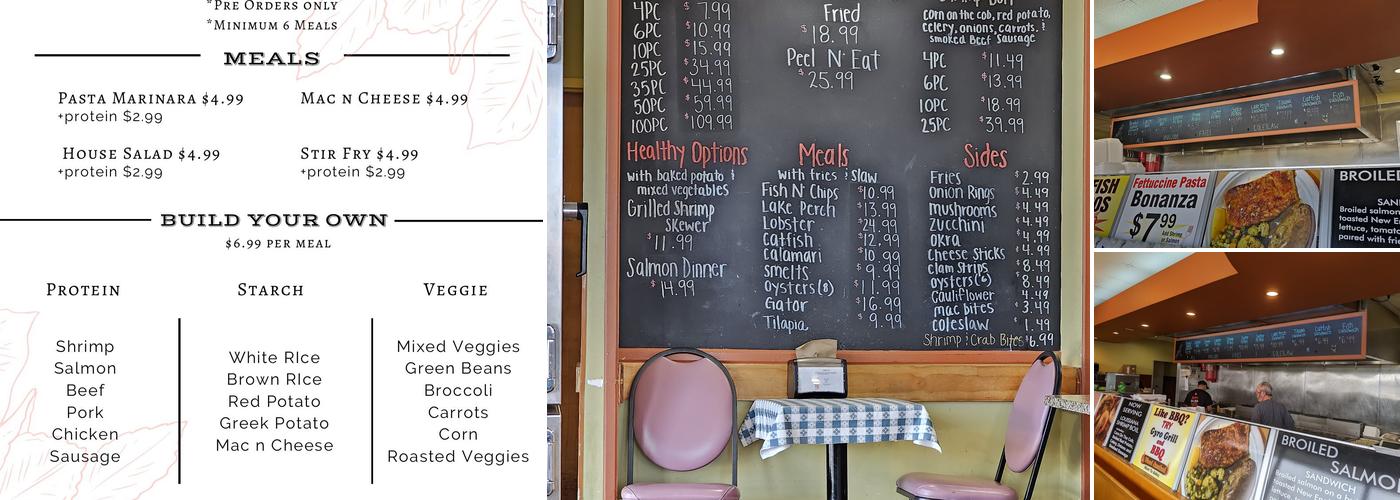 *Pre Orders only
*Minimum 6 Meals
MEALS
Pasta Marinara $4.99
+protein $2.99
Mac n Cheese $4.99
House Salad $4.99
+protein $2.99
Stir Fry $4.99
+protein $2.99
BUILD YOUR OWN
$6.99 per meal
Protein
Shrimp
Salmon
Beef
Pork
Chicken
Sausage
Starch
White RIce
Brown RIce
Red Potato
Greek Potato
Mac n Cheese
Veggie
Mixed Veggies
Green Beans
Broccoli
Carrots
Corn
Roasted Veggies
4PC $7.99
6PC $10.99
10PC $15.99
25PC $34.99
35PC $44.99
50PC $59.99
100PC $109.99
Fried
$18.99
Peel N' Eat
$25.99
corn on the cob, red potato,
celery, onions, carrots, &
smoked Beef Sausage
4PC $11.49
6PC $13.99
10PC $18.99
25PC $39.99
Healthy Options
with baked potato &
mixed vegetables
Grilled Shrimp
Skewer
$11.99
Salmon Dinner
$14.99
Meals
with fries & Slaw
Fish N' Chips $10.99
Lake Perch $13.99
Lobster $24.99
Catfish $12.99
Calamari $10.99
Smelts $9.99
Oysters(8) $11.99
Gator $16.99
Tilapia $9.99
Sides
Fries $2.99
Onion Rings $4.49
mushrooms $4.49
Zucchini $4.49
okra $4.99
Cheese Sticks $4.99
clam Strips $8.49
oysters(6) $8.49
Cauliflower $4.49
mac bites $3.49
coleslaw $1.49
Shrimp & Crab Bites $6.99
FISH
Fettuccine Pasta
Bonanza
$7.99
Add Shrimp
or Salmon
BROILED
SAN
Broiled salmon o
toasted New E
lettuce, tomato
paired with frie
NOW
SERVING
LOUISIANA
SHRIMP BOIL
Like BBQ?
TRY
Gyro Grill
and
BBQ
BROILED
SALMO
SANDWICH
Broiled salmon on a
toasted New Eng